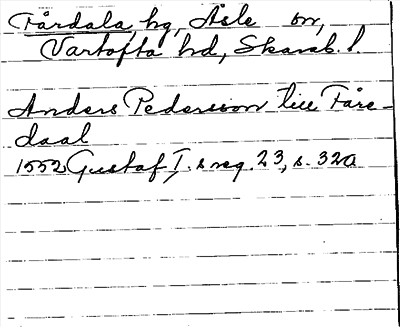 Fårdala hg, Åsle sn,
Vartofta hd, Skarab. l.
Anders Pedersson till Fåre-
daal
1552 Gustaf I.s reg. 23, s. 320